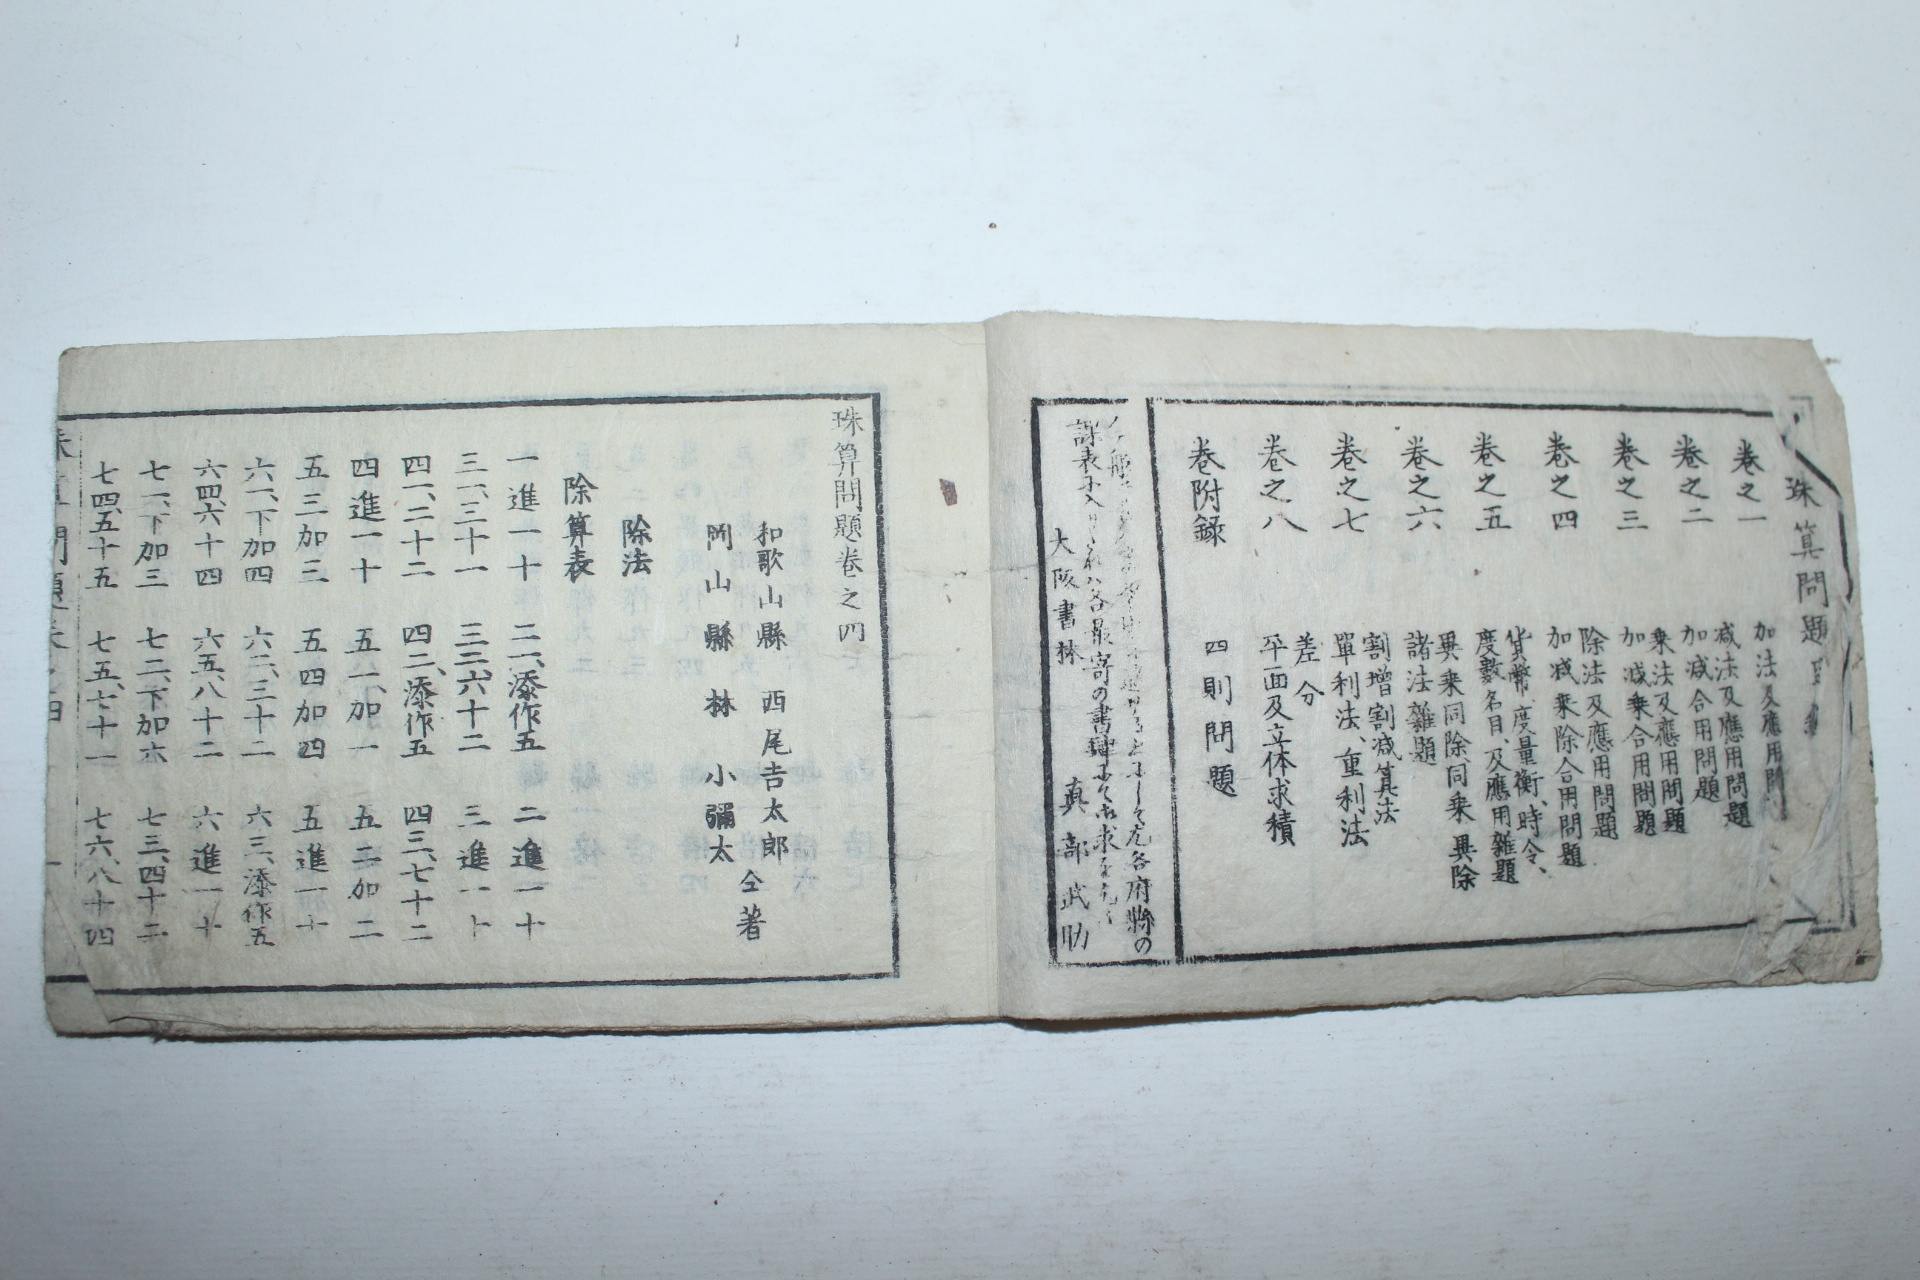 珠算問題
卷之一
加法及應用問
卷之二
減法及應用問題
加減合用問題
卷之三
乘法及應用問題
加減乘合用問題
卷之四
除法及應用問題
加減乘除合用問題
卷之五
貨幣、度量衡、時令、
度數名目、及應用雜題
卷之六
異乘同除同乘異除
諸法雜題
卷之七
割增割減算法
單利法、重利法
卷之八
差分
平面及立体求積
卷附録
四則問題
各府縣の
課表に入りたれハ各最寄の書肆にて御求
大阪書林 真部武助
珠算問題卷之四
和歌山縣 西尾吉太郎
岡山縣 林小彌太 仝著
除法
除算表
一進一十 二一、添作五 二進一十
三一、三十一 三二、六十二 三進一十
四一、二十二 四二、添作五 四三、七十二
四進一十 五一、加一 五二加二
五三加三 五四加四 五進一十
六一、下加四 六二、三十二 六三、添作五
六四、六十四 六五、八十二 六進一十
七一、下加三 七二、下加六 七三、四十二
七四、五十五 七五、七十一 七六、八十四